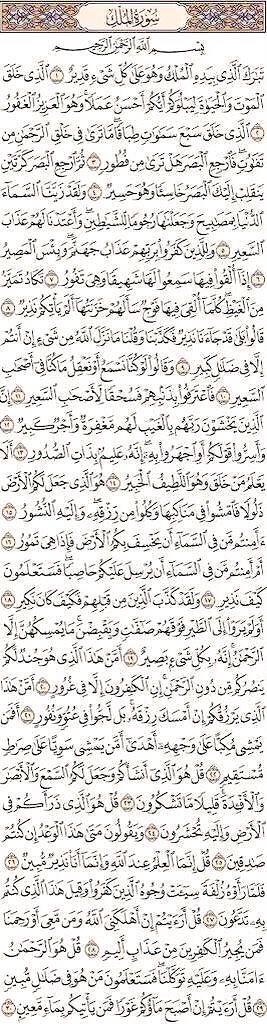 سُورَةُ الْمُلْكِ
بِسْمِ اللَّهِ الرَّحْمَٰنِ الرَّحِيمِ
تَبَارَكَ الَّذِي بِيَدِهِ الْمُلْكُ وَهُوَ عَلَىٰ كُلِّ شَيْءٍ قَدِيرٌ ١ الَّذِي خَلَقَ
الْمَوْتَ وَالْحَيَاةَ لِيَبْلُوَكُمْ أَيُّكُمْ أَحْسَنُ عَمَلًا وَهُوَ الْعَزِيزُ الْغَفُورُ
٢ الَّذِي خَلَقَ سَبْعَ سَمَاوَاتٍ طِبَاقًا مَّا تَرَىٰ فِي خَلْقِ الرَّحْمَٰنِ مِن
تَفَاوُتٍ فَارْجِعِ الْبَصَرَ هَلْ تَرَىٰ مِن فُطُورٍ ٣ ثُمَّ ارْجِعِ الْبَصَرَ كَرَّتَيْنِ
يَنقَلِبْ إِلَيْكَ الْبَصَرُ خَاسِئًا وَهُوَ حَسِيرٌ ٤ وَلَقَدْ زَيَّنَّا السَّمَاءَ
الدُّنْيَا بِمَصَابِيحَ وَجَعَلْنَاهَا رُجُومًا لِّلشَّيَاطِينِ وَأَعْتَدْنَا لَهُمْ عَذَابَ
السَّعِيرِ ٥ وَلِلَّذِينَ كَفَرُوا بِرَبِّهِمْ عَذَابُ جَهَنَّمَ وَبِئْسَ الْمَصِيرُ
٦ إِذَا أُلْقُوا فِيهَا سَمِعُوا لَهَا شَهِيقًا وَهِيَ تَفُورُ ٧ تَكَادُ تَمَيَّزُ
مِنَ الْغَيْظِ كُلَّمَا أُلْقِيَ فِيهَا فَوْجٌ سَأَلَهُمْ خَزَنَتُهَا أَلَمْ يَأْتِكُمْ نَذِيرٌ ٨
قَالُوا بَلَىٰ قَدْ جَاءَنَا نَذِيرٌ فَكَذَّبْنَا وَقُلْنَا مَا نَزَّلَ اللَّهُ مِن شَيْءٍ إِنْ أَنتُمْ
إِلَّا فِي ضَلَالٍ كَبِيرٍ ٩ وَقَالُوا لَوْ كُنَّا نَسْمَعُ أَوْ نَعْقِلُ مَا كُنَّا فِي أَصْحَابِ
السَّعِيرِ ١٠ فَاعْتَرَفُوا بِذَنبِهِمْ فَسُحْقًا لِّأَصْحَابِ السَّعِيرِ ١١ إِنَّ
الَّذِينَ يَخْشَوْنَ رَبَّهُم بِالْغَيْبِ لَهُم مَّغْفِرَةٌ وَأَجْرٌ كَبِيرٌ ١٢
وَأَسِرُّوا قَوْلَكُمْ أَوِ اجْهَرُوا بِهِ إِنَّهُ عَلِيمٌ بِذَاتِ الصُّدُورِ ١٣ أَلَا
يَعْلَمُ مَنْ خَلَقَ وَهُوَ اللَّطِيفُ الْخَبِيرُ ١٤ هُوَ الَّذِي جَعَلَ لَكُمُ الْأَرْضَ
ذَلُولًا فَامْشُوا فِي مَنَاكِبِهَا وَكُلُوا مِن رِّزْقِهِ وَإِلَيْهِ النُّشُورُ ١٥
ءَأَمِنتُم مَّن فِي السَّمَاءِ أَن يَخْسِفَ بِكُمُ الْأَرْضَ فَإِذَا هِيَ تَمُورُ ١٦
أَمْ أَمِنتُم مَّن فِي السَّمَاءِ أَن يُرْسِلَ عَلَيْكُمْ حَاصِبًا فَسَتَعْلَمُونَ
كَيْفَ نَذِيرِ ١٧ وَلَقَدْ كَذَّبَ الَّذِينَ مِن قَبْلِهِمْ فَكَيْفَ كَانَ نَكِيرِ ١٨
أَوَلَمْ يَرَوْا إِلَى الطَّيْرِ فَوْقَهُمْ صَافَّاتٍ وَيَقْبِضْنَ مَا يُمْسِكُهُنَّ إِلَّا
الرَّحْمَٰنُ إِنَّهُ بِكُلِّ شَيْءٍ بَصِيرٌ ١٩ أَمَّنْ هَٰذَا الَّذِي هُوَ جُندٌ لَّكُمْ
يَنصُرُكُم مِّن دُونِ الرَّحْمَٰنِ إِنِ الْكَافِرُونَ إِلَّا فِي غُرُورٍ ٢٠ أَمَّنْ هَٰذَا
الَّذِي يَرْزُقُكُمْ إِنْ أَمْسَكَ رِزْقَهُ بَل لَّجُّوا فِي عُتُوٍّ وَنُفُورٍ ٢١ أَفَمَن
يَمْشِي مُكِبًّا عَلَىٰ وَجْهِهِ أَهْدَىٰ أَمَّن يَمْشِي سَوِيًّا عَلَىٰ صِرَاطٍ
مُّسْتَقِيمٍ ٢٢ قُلْ هُوَ الَّذِي أَنشَأَكُمْ وَجَعَلَ لَكُمُ السَّمْعَ وَالْأَبْصَارَ
وَالْأَفْئِدَةَ قَلِيلًا مَّا تَشْكُرُونَ ٢٣ قُلْ هُوَ الَّذِي ذَرَأَكُمْ فِي
الْأَرْضِ وَإِلَيْهِ تُحْشَرُونَ ٢٤ وَيَقُولُونَ مَتَىٰ هَٰذَا الْوَعْدُ إِن كُنتُمْ
صَادِقِينَ ٢٥ قُلْ إِنَّمَا الْعِلْمُ عِندَ اللَّهِ وَإِنَّمَا أَنَا نَذِيرٌ مُّبِينٌ ٢٦
فَلَمَّا رَأَوْهُ زُلْفَةً سِيئَتْ وُجُوهُ الَّذِينَ كَفَرُوا وَقِيلَ هَٰذَا الَّذِي كُنتُم
بِهِ تَدَّعُونَ ٢٧ قُلْ أَرَءَيْتُمْ إِنْ أَهْلَكَنِيَ اللَّهُ وَمَن مَّعِيَ أَوْ رَحِمَنَا
فَمَن يُجِيرُ الْكَافِرِينَ مِنْ عَذَابٍ أَلِيمٍ ٢٨ قُلْ هُوَ الرَّحْمَٰنُ
ءَامَنَّا بِهِ وَعَلَيْهِ تَوَكَّلْنَا فَسَتَعْلَمُونَ مَنْ هُوَ فِي ضَلَالٍ مُّبِينٍ
٢٩ قُلْ أَرَءَيْتُمْ إِنْ أَصْبَحَ مَاؤُكُمْ غَوْرًا فَمَن يَأْتِيكُم بِمَاءٍ مَّعِينٍ ٣٠